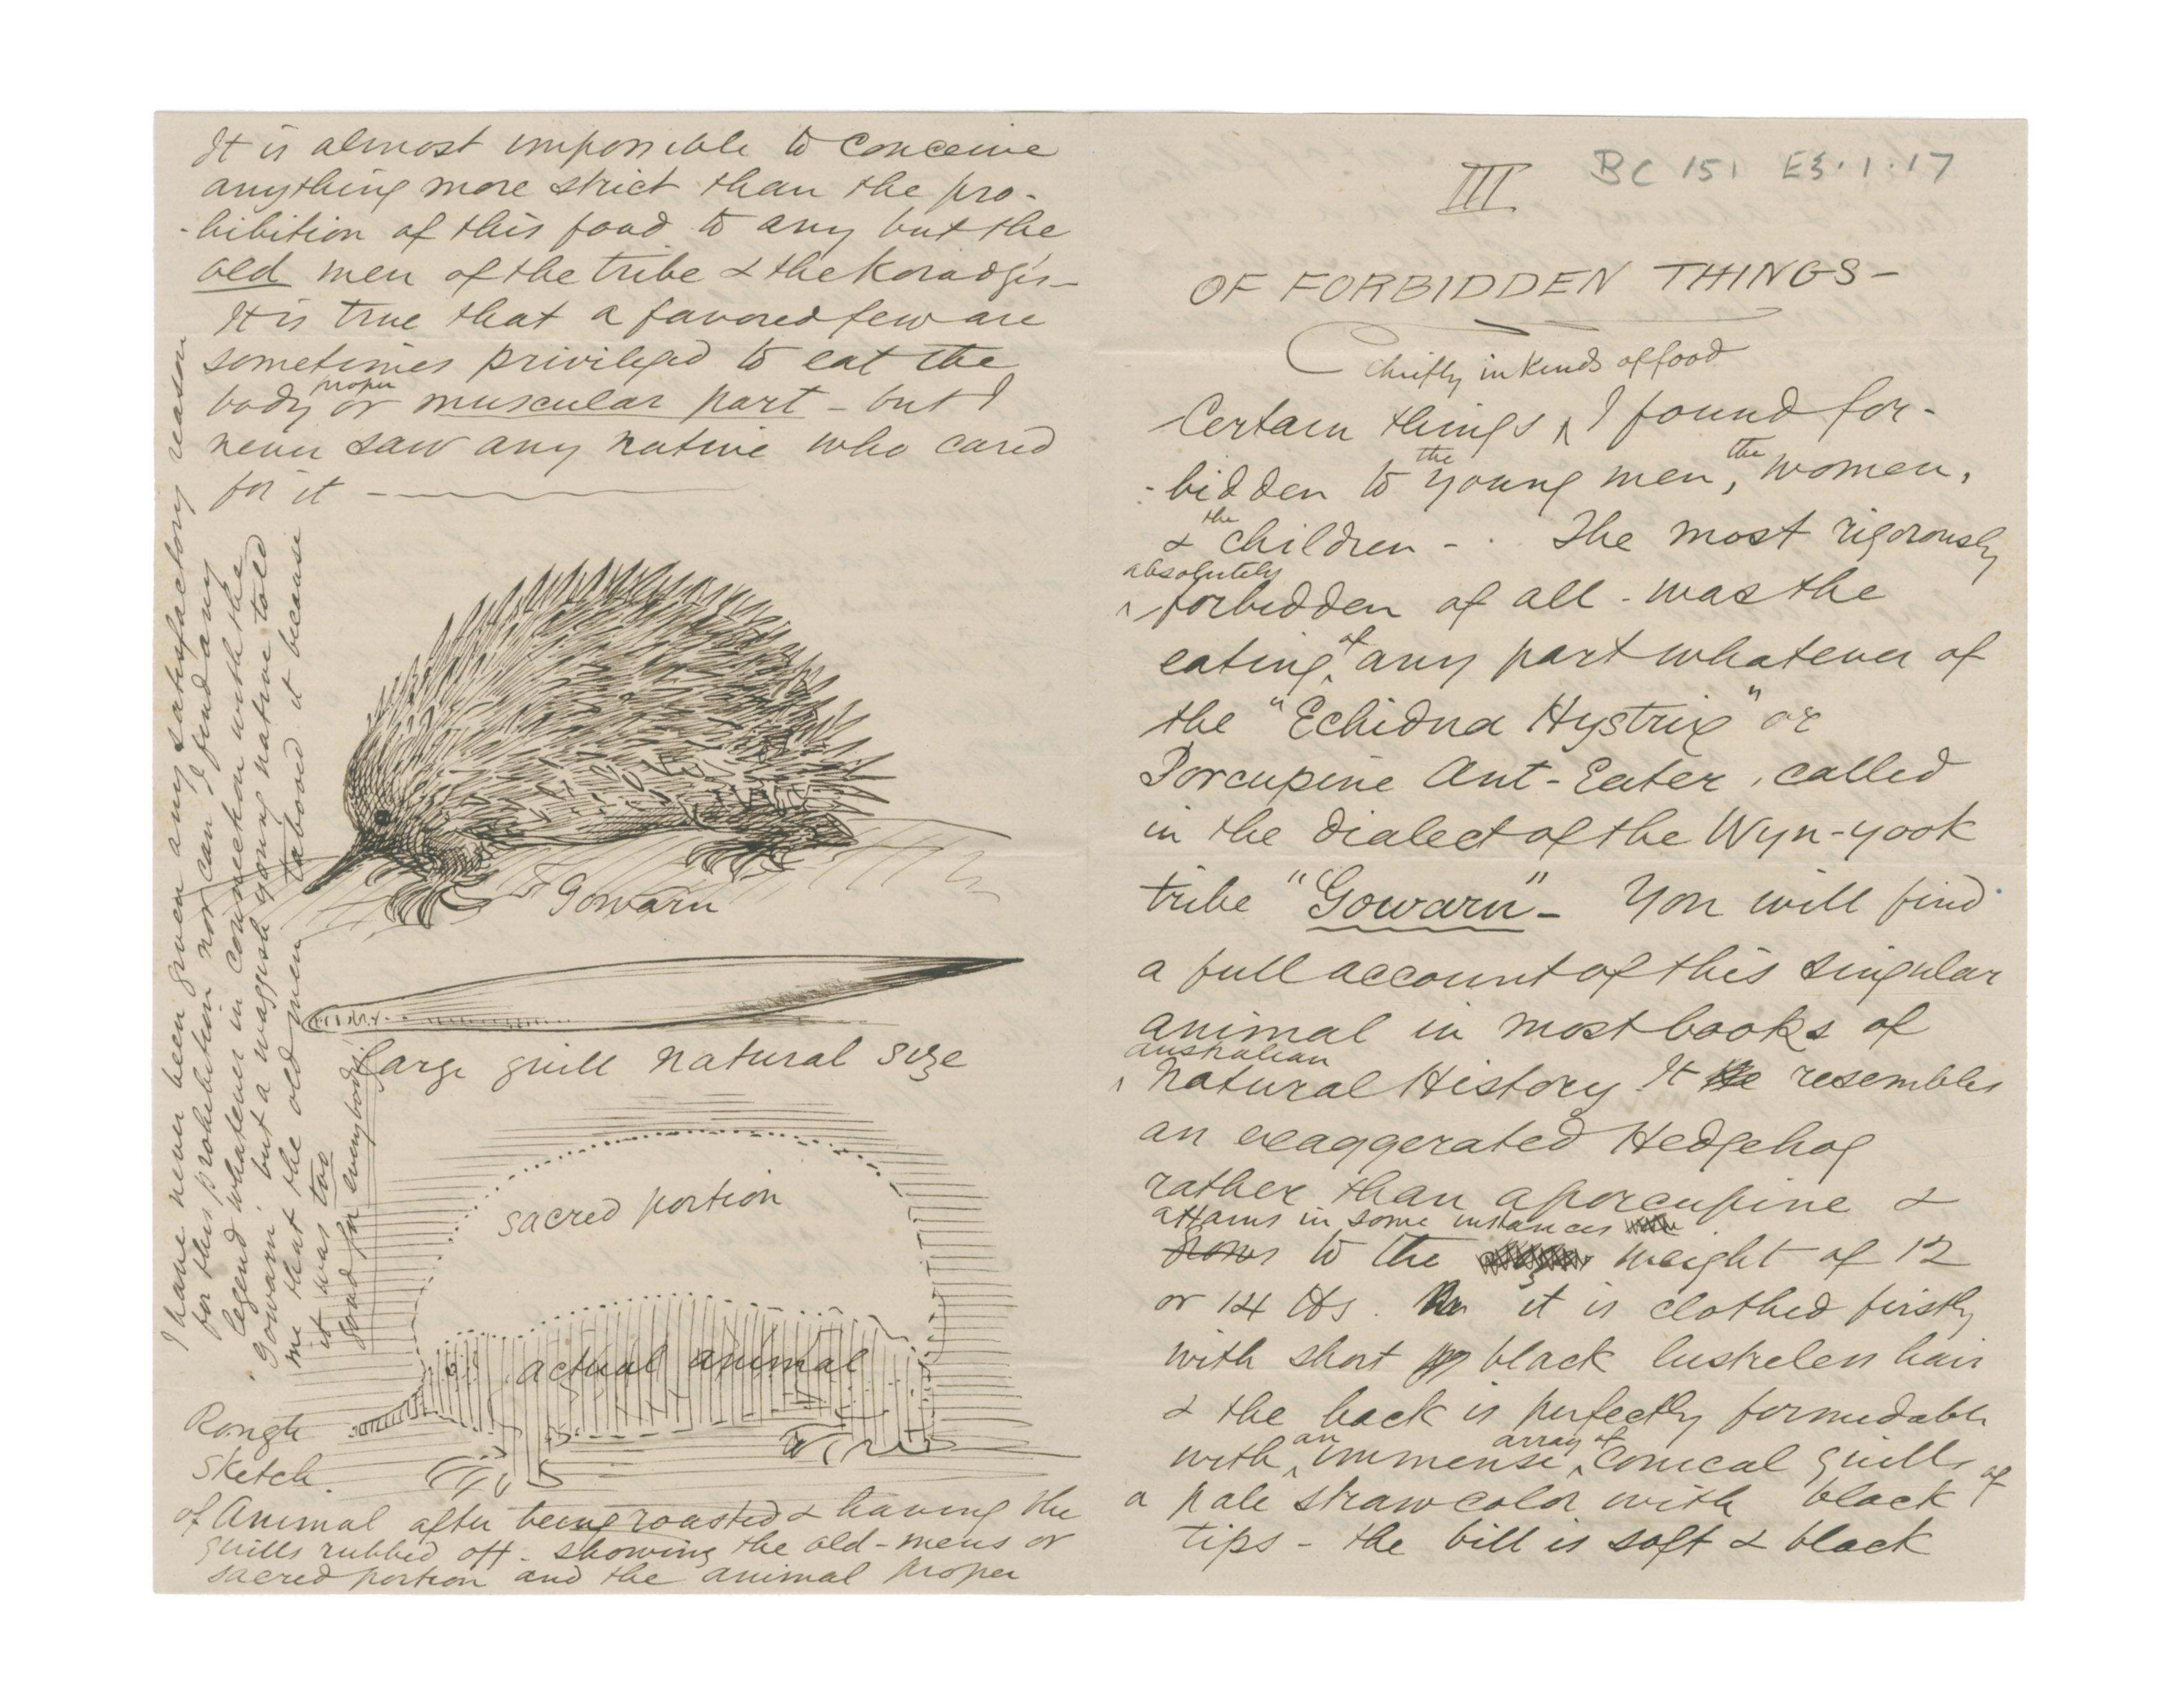 It is almost impossible to conceive
anything more strict than the pro-
-hibition of this food to any but the
old men of the tribe & the Koradgis -
It is true that a favored few are
sometimes privileged to eat the
proper
body or muscular part - but I
never saw any native who cared
for it -
Gowarn
large quill natural size
sacred portion
actual animal
Rough
Sketch.
of Animal after being roasted & having the
quills rubbed off - showing the old-mens or
sacred portion and the animal proper
I have never been given any satisfactory reason
for this prohibition nor can I find any
legend whatever in connection with the
"Gowarn" but a waggish young native told
me that the old men tabooed it because
it was too
good for everybody.
III
BC 151 E3.1.17
OF FORBIDDEN THINGS -
Chiefly in Kinds of food
Certain things I found for-
the the
-bidden to young men, women,
the
& children - . The most rigorously
absolutely
forbidden of all - was the
of
eating any part whatever of
the "Echidna Hystrix" or
Porcupine Ant-Eater, called
in the dialect of the Wyn-yook
tribe "Gowarn" - You will find
a full account of this singular
animal in most books of
australian
Natural History It resembles
an exaggerated Hedgehog
rather than a porcupine &
attains in some instances
to the weight of 12
or 14 lbs. it is clothed firstly
with short black lustreless hair
& the back is perfectly formidable
an array of
with immense conical quills of
a pale straw color with black
tips - the bill is soft & black